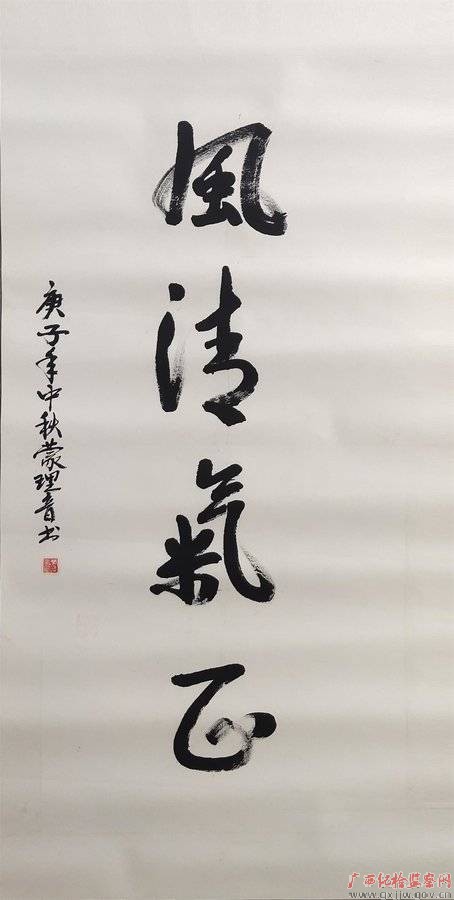 風清氣正
庚子年中秋蒙理音书
广西纪检监察网
www.gxjjw.gov.cn